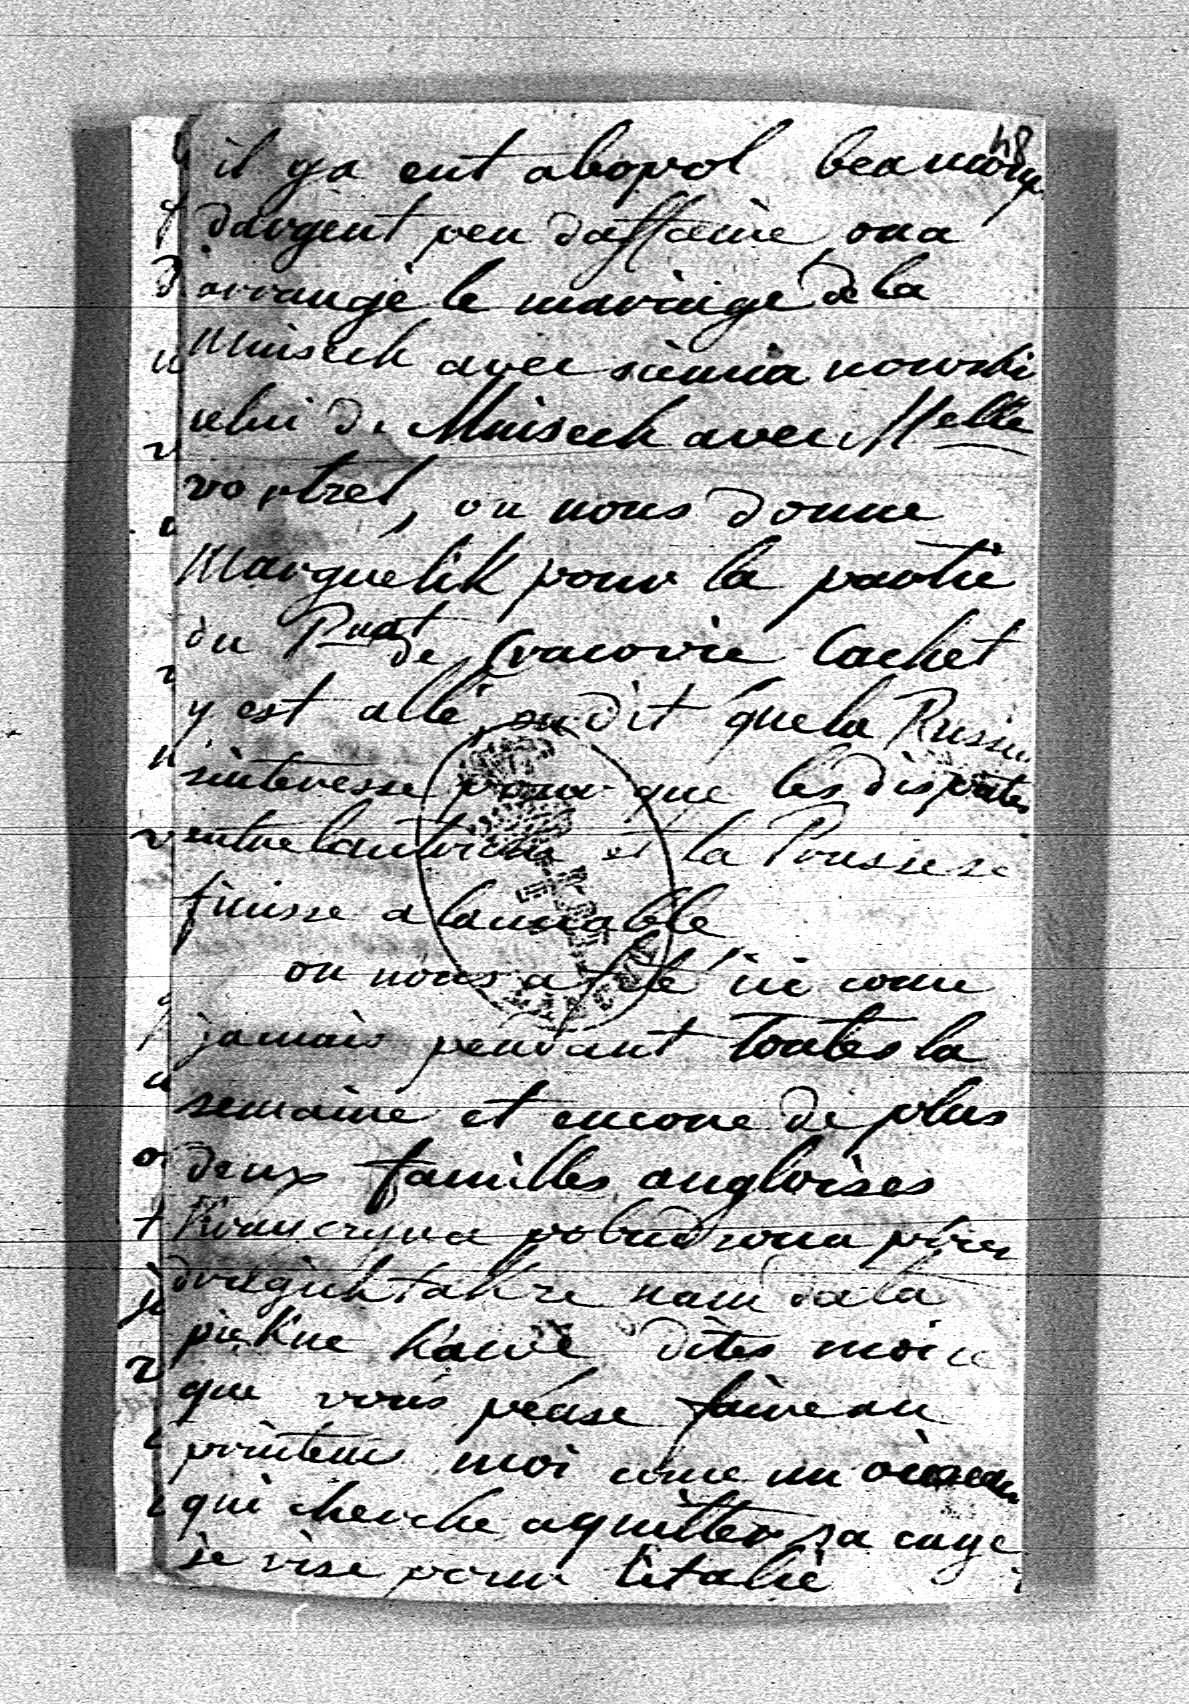 48
il ya eut abopol beaucoup
dargent peu daffaire, ona
arrangé le mariage de la
Minisech avec siemia nowski
celui de Minisech avec Melle
on nous donne
Marguelik pour la partie
du Pnat de Cracovie Cachet
y est allé, on dit que la Russie
sinteresse pour que les disputes
entre lautriche et la Prusse se
finisse a lamiable
on nous a fété ici come
jamais pendant toutes la
semaine et encore de plus
deux familles angloises
nam dala
piekne dites moi ce
que vous pense faire au
printems moi come un oiseau
qui cherche aquitter sa cage
je vise pour litalie